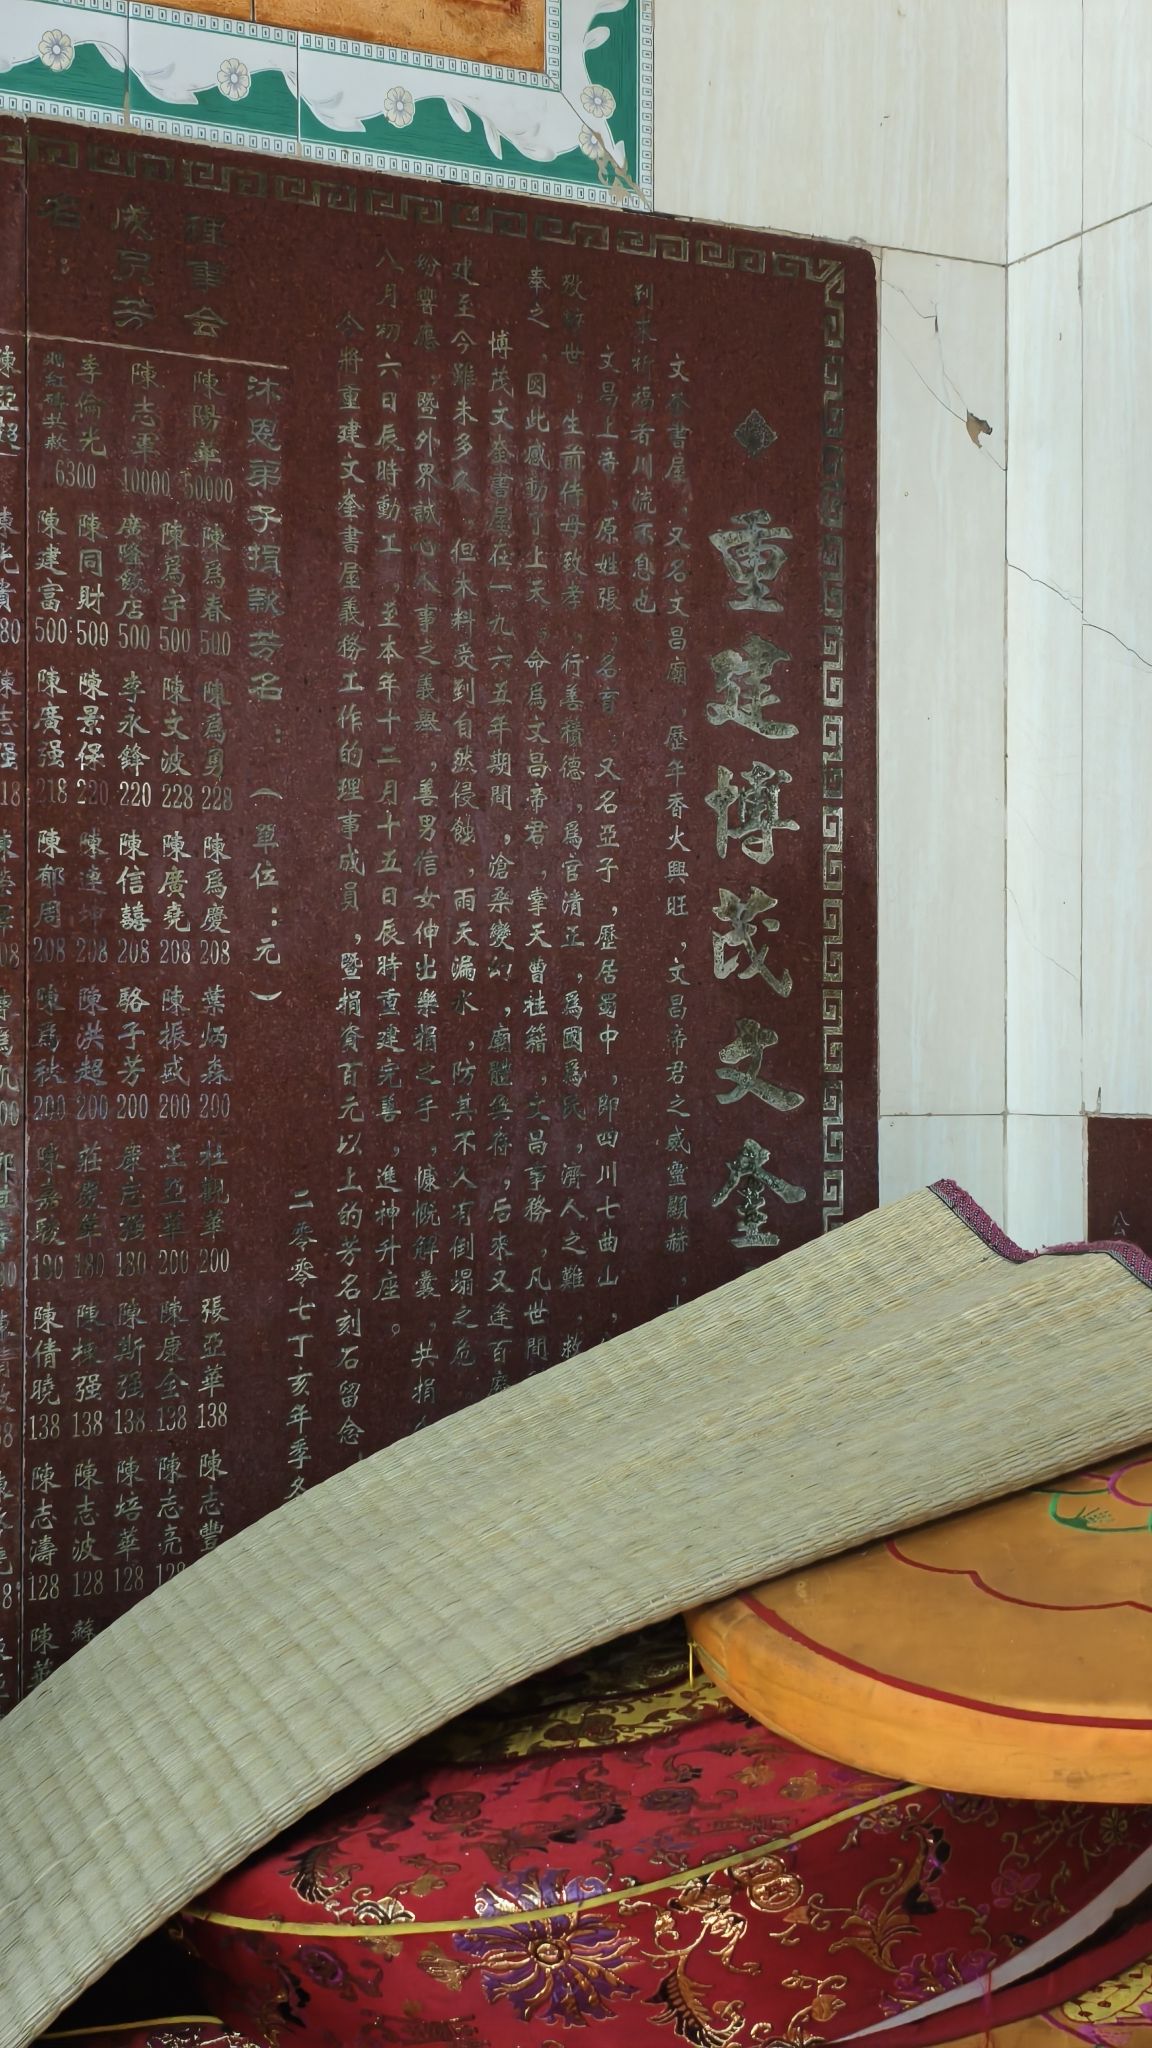 重建博茂文奎
文奎書屋，又名文昌廟，歷年香火興旺，文昌帝君之威靈顯赫，
到來祈福者川流不息也
文昌上帝，原姓張，名育，又名亞子，歷居蜀中，即四川七曲山，
救劫世。生前侍母致孝，行善積德，爲官清正，爲國爲民，濟人之難，救
奉之，因此感動了上天，命爲文昌帝君，掌天曹桂籍，文昌事務，凡世間
博茂文奎書屋在一九六五年期間，滄桑變幻，廟體無存，后來又逢百廢
建至今雖未多久，但未料受到自然侵蝕，雨天漏水，防其不久有倒塌之危
紛響應，暨外界誠心之義舉，善男信女伸出樂捐之手，慷慨解囊，共捐
八月初六日辰時動工，至本年十二月十五日辰時重建完善，進神升座。
今將重建文奎書屋義務工作的理事成員，暨捐資百元以上的芳名刻石留念
二零零七丁亥年季冬
沐恩弟子捐款芳名：（單位：元）
理事会成員芳名：
陳陽華 50000 陳爲春 500 陳爲勇 228 陳爲慶 208 葉炳森 200 杜觀華 200 張亞華 138 陳志豐
陳志軍 10000 陳爲宇 500 陳文波 228 陳廣堯 208 陳振盛 200 王亞華 200 陳康全 138 陳志亮
廣隆飯店 500 李永鋒 220 陳信囍 208 駱子芳 200 康志强 180 陳斯强 138 陳培華 128
李倫光 6300 陳同財 500 陳景保 220 陳連坤 208 陳洪超 200 莊慶華 180 陳棟强 138 陳志波 128
陳建富 500 陳廣强 218 陳郁周 208 陳爲秋 200 陳嘉駿 190 陳倩曉 138 陳志濤 128 陳
陳亞超